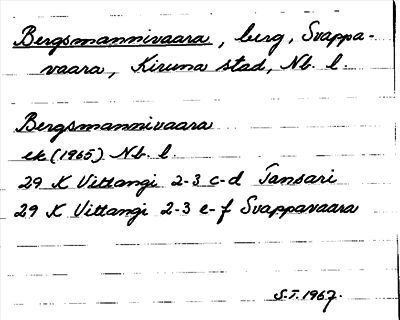 Bergsmannivaara, berg, Svappa-
vaara, Kiruna stad, Nb. l.
Bergsmannivaara
ek (1965) Nb. l.
29 K Vittangi 2-3 c-d Tansari
29 K Vittangi 2-3 e-f Svappavaara
S.T. 1967.